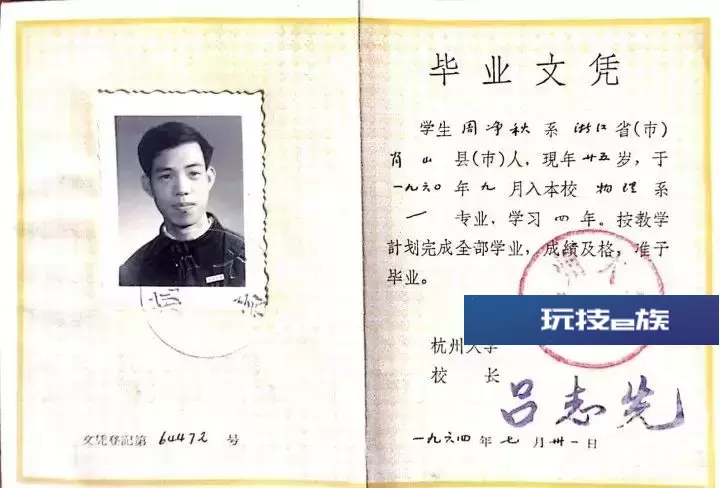 毕业文凭
学生周净秋系浙江省(市)
肖山县(市)人，现年廿五岁，于
一九六〇年九月入本校物理系
一专业，学习四年。按教学
計划完成全部学业，成绩及格，准予
毕业。
玩技e族
杭州大学
校长 吕志先
一九六四年七月卅一日
文凭登記第 64472 号